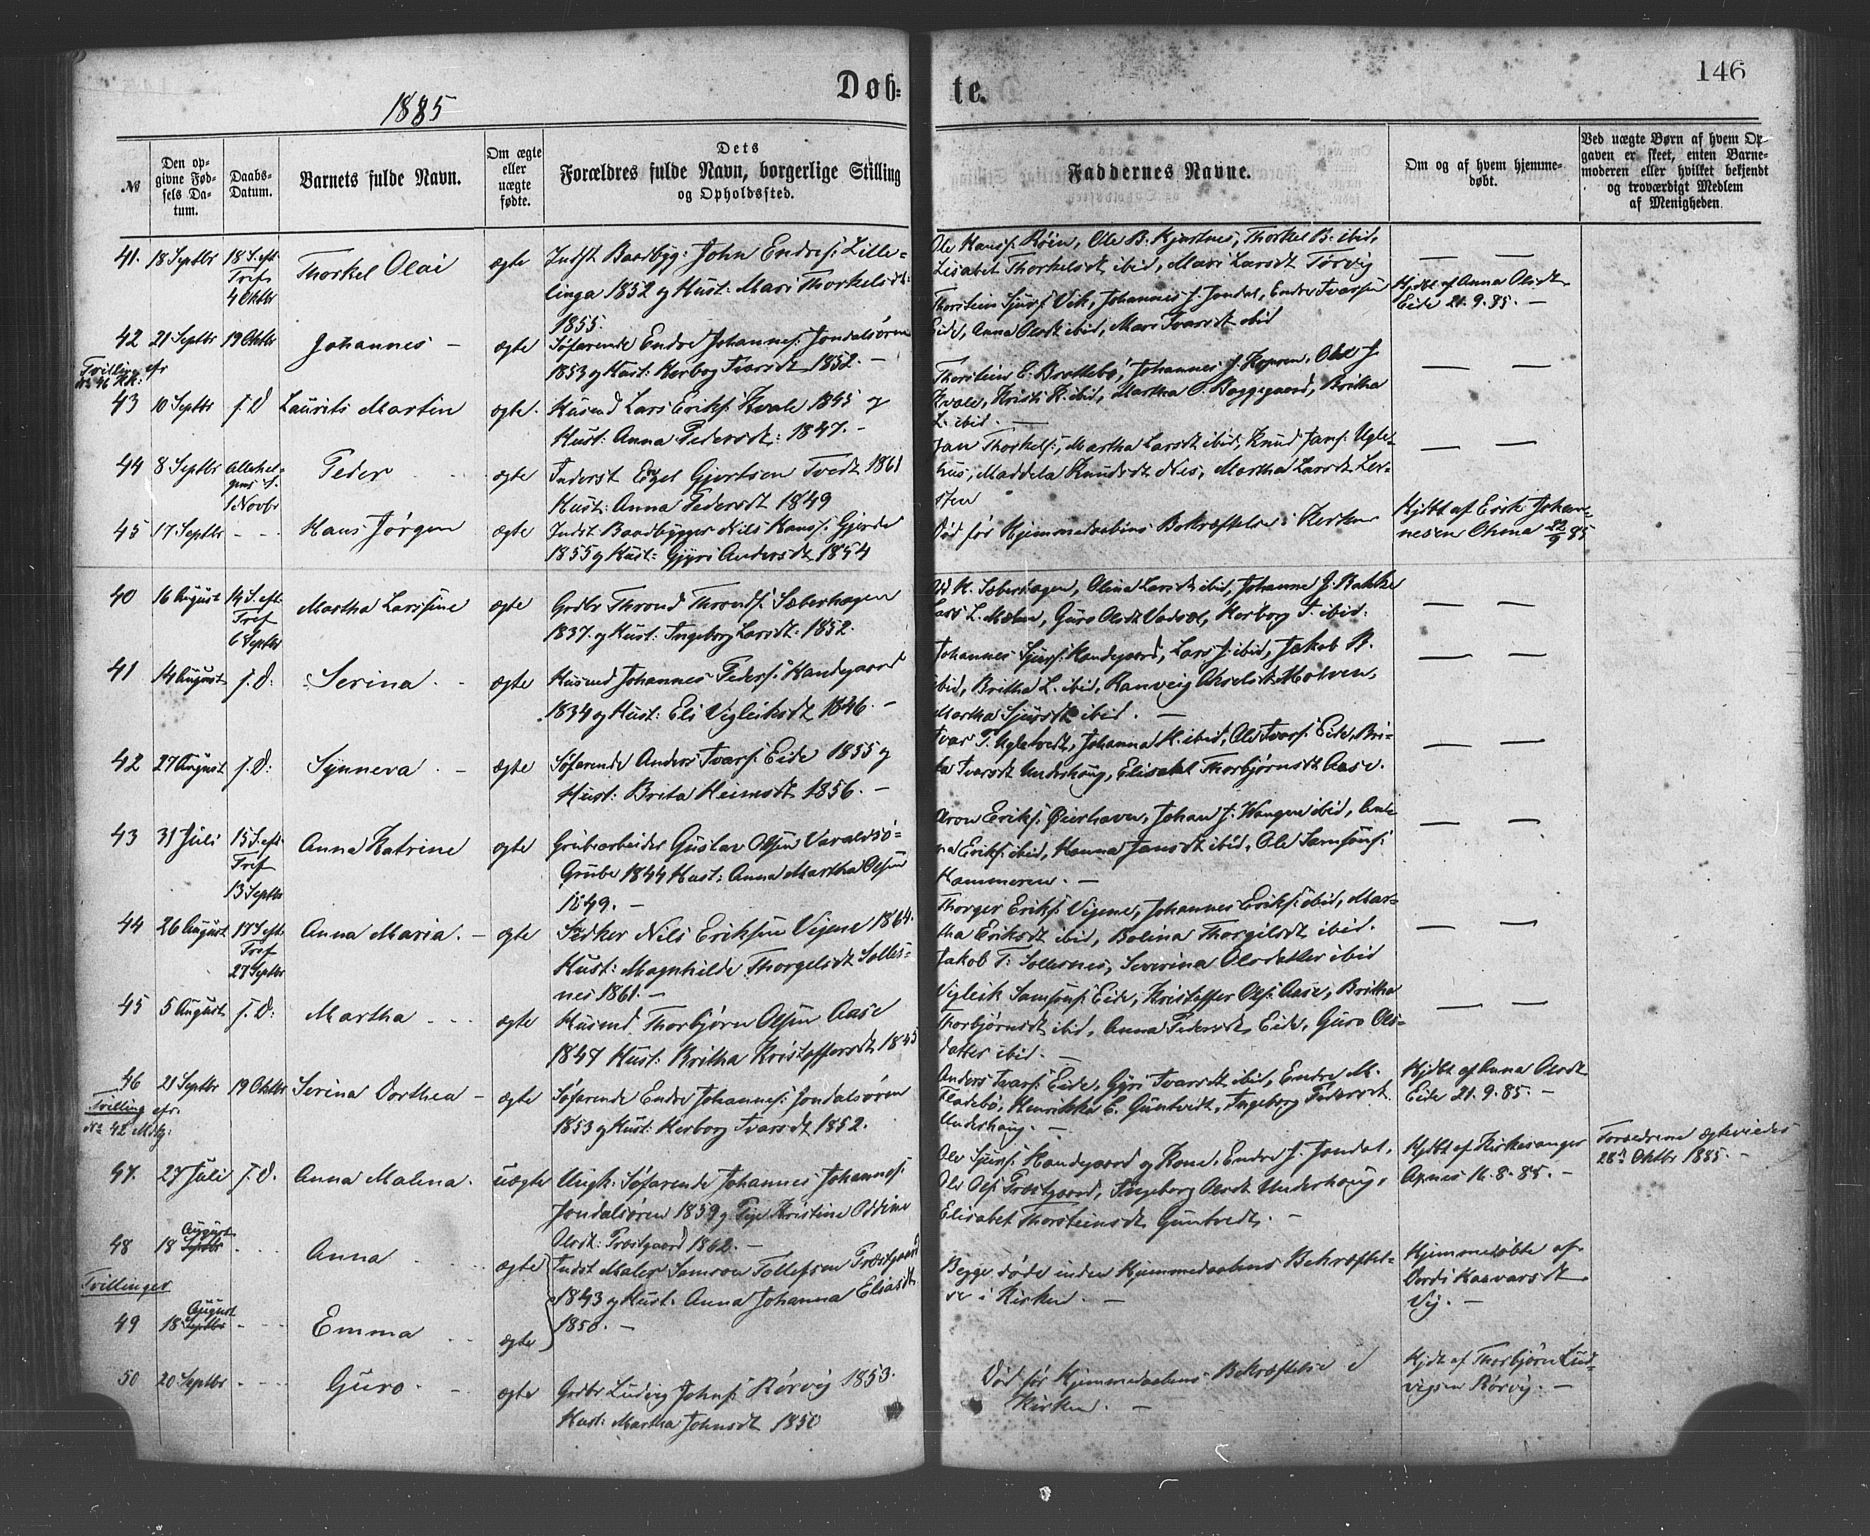 146
Døb-
te.
1885
№
Den op-
givne Fød-
sels Da-
tum.
Daabs-
Datum.
Barnets fulde Navn.
Om ægte
eller
uægte
fødte.
Dets
Forældres fulde Navn, borgerlige Stilling
og Opholdssted.
Faddernes Navne.
Om og af hvem hjemme-
døbt.
Ved uægte Børn af hvem Op-
gaven er skeet, enten Barne-
moderen eller hvilket bekjendt
og troværdigt Medlem
af Menigheden.
41. 18 Septbr 18 S. eft.
Tref.
4 Oktbr
Thorkel Olai
ægte
Indst Baadbyg: John Endres: Lille-
linga 1852 og Hust: Mari Thorkelsdt:
1855.
Ole Hans: Røen, Ole B. Kjertnes, Thorkel B. ibid,
Lisabet Thorkelsdt ibid, Mari Larsdt Torvig
— —
42 21 Septbr 19 Oktbr
Tvilling efr
№ 46 KK:
Johannes —
ægte
Søfarende Endre Johannes: Jondalsøren
1853 og Hust: Herborg Ivarsdt 1852. —
Thorstein Sjurs: Vik, Johannes J. Jondal, Endre Ivarsen
Eide, Anna Olsdt ibid, Mari Ivarsdt ibid
Hjdbt af Anna Olsdt
Eide 21.9.85. —
43 10 Septbr f. D
Laurits Martin
ægte.
Husmd Lars Eriks: Kvale 1845 og
Hust: Anna Pedersdt: 1847. —
Thorstein E. Brattebø, Johannes J. Kopren, Ole J.
Kvale, Kristi K. ibid, Martha O. Byggegaard, Britha
L. ibid. —
— —
44 8 Septbr Allehel-
gens f.
1 Novbr
Peder
ægte
Inderst Engel Gjertsen Tvedt 1861
Hust: Anna Pedersdt 1849
Jan Thorkels:, Martha Larsdt ibid, Knud Jans: Ugle-
hus, Maddela Knudsdt Nes, Martha Larsdt Ler-
sten
— —
45 17 Septbr - - -
Hans Jørgen
ægte
Indst: Baadbygger Nils Hans: Gjerde
1855 og Hust: Gjyri Andersdt 1854
Død før Hjemmedaabens Bekræftelse i Kirken
Hjdbt af Erik Johan-
nesen Oma 22/9 85
40 16 August 14 S. eft.
Tref
6 Septbr
Martha Larsine
ægte
Grdbr Thrond Thronds: Sæberhagen
1837. og Hust: Ingeborg Larsdt. 1852.
Od K. Sæberhagen, Olina Larsdt ibid, Johanne J. Bakke
Lars L. Melen, Guro Olsdt Vadsel, Herborg T. ibid.
— —
41 14 August f. D:
Serina. -
ægte
Husmd Johannes Peders: Handegaard
1834 og Hust: Eli Vigleiksdt 1846. —
Johannes Sjurs: Handegaard, Lars J. ibid, Jakob A.
ibid, Britha L. ibid, Ranveig Akselsdt Molven,
Martha Sjursdt ibid. —
— —
42 27 August f. D:
Synneva. -
ægte
Søfarende Anders Ivars: Eide 1855 og
Hust: Brita Heimsdt 1856. —
Ivar P. Ugletvedt, Johanna K. ibid, Ole Ivars: Eide, Bri-
ta Ivarsdt Underhaug, Elisabet Thorbjørnsdt Aase.
— —
43 31 Juli 15 S. eft.
Tref
13 Septbr
Anna Katrine
ægte
Grubearbeider Gustav Olsen Varaldsø-
Grube 1844 Hust: Anna Martha Olsen
1849. —
Aron Eriks: Øierhavn, Johan J. Wangen ibid, An-
na Eriks: ibid, Hanna Jansdt ibid, Ole Samsons:
Hammeren. —
— —
44 26 August 17 S. eft.
Tref
27 Septbr
Anna Maria. —
ægte
Nils Eriksen Vigene 1864.
Hust: Magnhilde Thorgelsdt Solles-
nes 1861. —
Thorger Eriks: Vigene, Johannes Eriks: ibid, Mar-
tha Eriksdt ibid, Bolina Thorgilsdt ibid.
Jakob T: Sollesnes, Severina Olsdatter ibid
— —
45 5 August f. D:
Martha. - -
ægte
Husmd Thorbjørn Olsen Aase
1847 Hust: Britha Kristoffersdt 1845
Vigleik Samsons: Eide, Kristoffer Ols: Aase, Britha
Thorbjørnsdt ibid, Anna Pedersdt Eide, Guro Ols-
datter ibid. —
— —
46 21 Septbr 19 Oktbr
Tvilling efr.
№ 42 Mkj:
Serina Dorthea -
ægte
Søfarende Endre Johannes: Jondalsøren
1853 og Hust: Herborg Ivarsdt 1852.
Anders Ivars: Eide, Gyri Ivarsdt ibid, Endre M.
Fladebø, Henrikka E. Guntveit, Ingeborg Pedersdt
Underhaug. —
Hjdbt af Anna Olsdt
Eide 21.9.85. —
47. 27 Juli f. D.
Anna Malena.
uægte
Ungk: Søfarende Johannes Johannes:
Jondalsøren 1859 og Pige Kristine Oddine
Olsdt: Prestgaard 1862. —
Ole Sjurs: Handegaard og Kone, Endre J. Jondal,
Ole Ols: Prestgaard, Ingeborg Olsdt Underhaug,
Elisabet Thorsteinsdt Guntvedt. —
Hjdbt af Kirkesanger
Agnes 16-8-85. —
Forældrene ægteviede
28de Oktbr 1885. —
48 18 August
Septbr - - -
Anna
ægte
Indst Maler Samson Tollefsen Prestgaard
1843 og Hust: Anna Johanna Eliasdt
1850. —
Begge døde inden Hjemmedaabens Bekræftel-
se i Kirken. —
Hjemmedøbte af
Vij. —
Tvillinger
49 18 August
Septbr - - -
Emma
ægte
50 20 Septbr - - -
Guro. -
ægte
Grdbr Ludvig Johns: Rørvig 1853.
Hust: Martha Johnsdt 1850
Død før Hjemmedaabens Bekræftelse i
Kirken. —
Hjdt af Thorbjørn Lud-
vigsen Rørvig. —